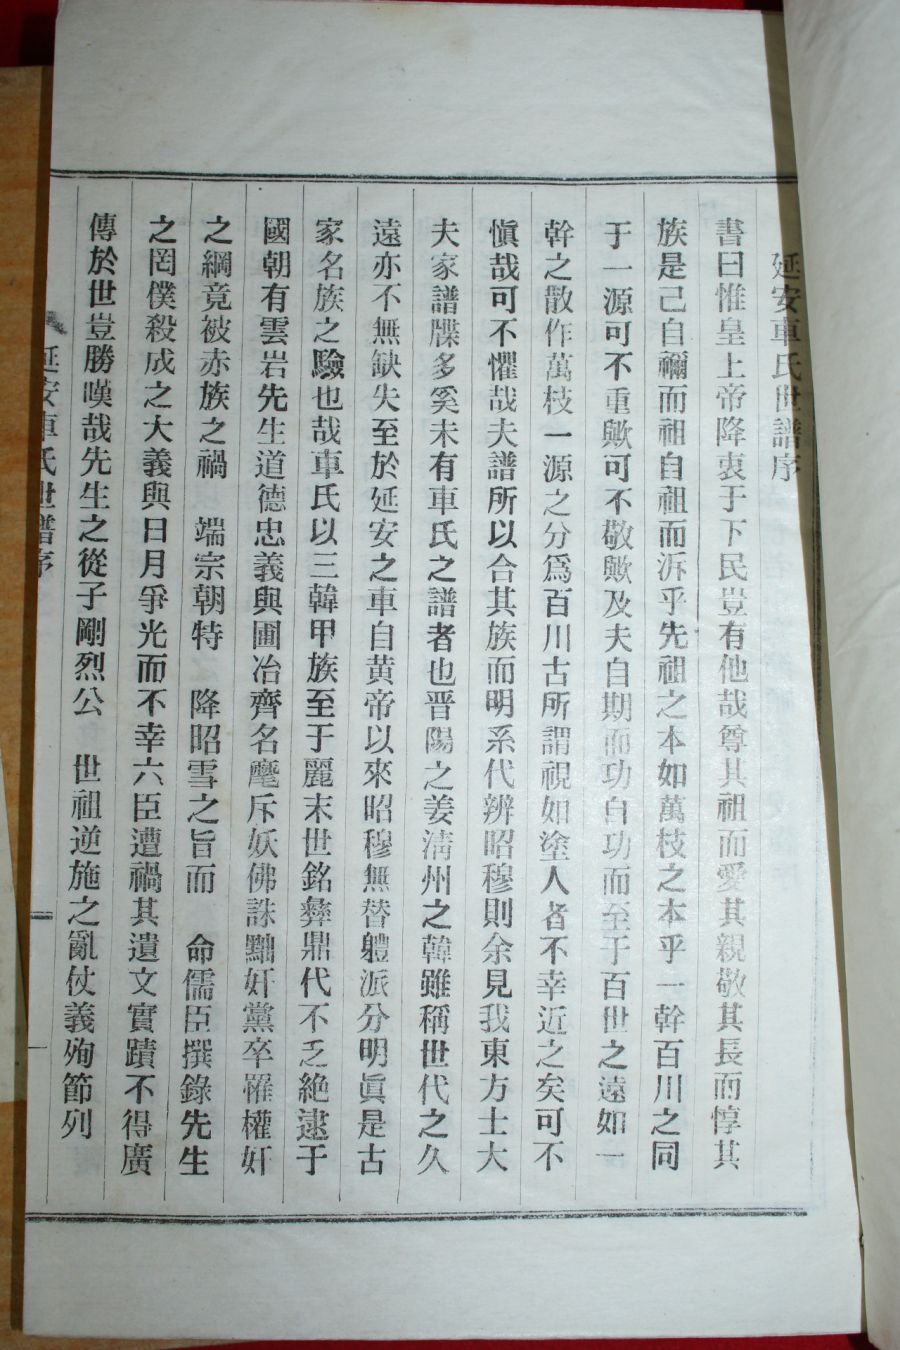 延安車氏世譜序
書曰惟皇上帝降衷于下民豈有他哉尊其祖而愛其親敬其長而惇其
族是己自禰而祖自祖而泝乎先祖之本如萬枝之本乎一幹百川之同
于一源可不重歟可不敬歟及夫自期而功自功而至于百世之遠如一
幹之散作萬枝一源之分爲百川古所謂視如塗人者不幸近之矣可不
愼哉可不懼哉夫譜所以合其族而明系代辨昭穆則余見我東方士大
夫家譜牒多奚未有車氏之譜者也晋陽之姜淸州之韓雖稱世代之久
遠亦不無缺失至於延安之車自黄帝以來昭穆無替軆派分明眞是古
家名族之驗也哉車氏以三韓甲族至于麗末世銘彝鼎代不乏絶逮于
國朝有雲岩先生道德忠義與圃冶齊名麾斥妖佛誅黜奸黨卒罹權奸
之綱竟被赤族之禍 端宗朝特 降昭雪之旨而 命儒臣撰錄先生
之罔僕殺成之大義與日月爭光而不幸六臣遭禍其遺文實蹟不得廣
傳於世豈勝嘆哉先生之從子剛烈公 世祖逆施之亂仗義殉節列
延安車氏世譜序
一